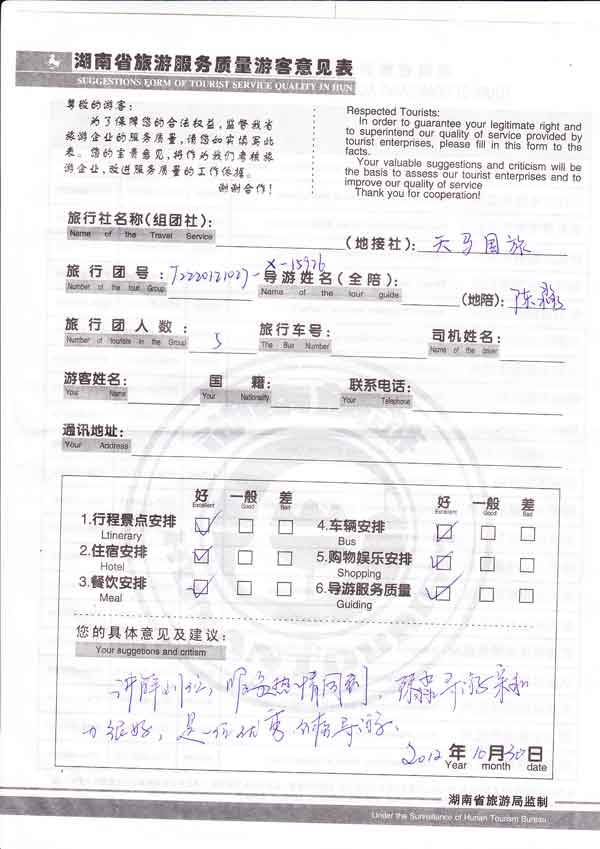 湖南省旅游服务质量游客意见表
SUGGESTIONS FORM OF TOURIST SERVICE QUALITY IN HUN
尊敬的游客：
为了保障您的合法权益，监督我省
旅游企业的服务质量，请您如实填写此
表。您的宝贵意见，将作为我们考核旅
游企业，改进服务质量的工作依据。
谢谢合作！
Respected Tourists:
In order to guarantee your legitimate right and
to superintend our quality of service provided by
tourist enterprises, please fill in this form to the
facts.
Your valuable suggestions and criticism will be
the basis to assess our tourist enterprises and to
improve our quality of service
Thank you for cooperation!
旅行社名称(组团社)： (地接社)：天马国旅
Name of the Travel Service
旅行团号： 导游姓名(全陪)：
Number of the tour Group Name of the tour guide (地陪)：陈
旅行团人数：5 旅行车号： 司机姓名：
Number of tourists in the Group The Bus Number Name of the driver
游客姓名： 国籍： 联系电话：
Your Name Your Nationality Your Telephone
通讯地址：
Your Address
好 一般 差 好 一般 差
Excellent Good Bad Excellent Good Bad
1.行程景点安排 4.车辆安排
Ltinerary Bus
2.住宿安排 5.购物娱乐安排
Hotel Shopping
3.餐饮安排 6.导游服务质量
Meal Guiding
您的具体意见及建议：
Your suggetions and critism
讲解到位，服务热情周到，导游亲和
力很好，是一位优秀的导游。
2012年10月30日
Year month date
湖南省旅游局监制
Under the Surveillance of Hunan Tourism Bureau